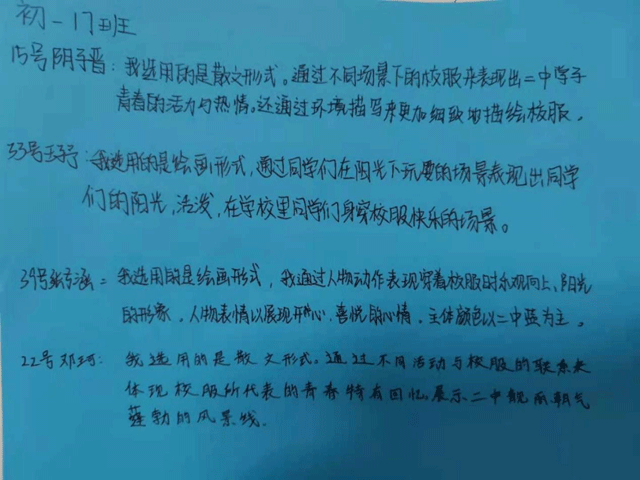 初一17班
15号阴予晋：我选用的是散文形式。通过不同场景下的校服来表现出二中学子
青春的活力与热情。还通过环境描写来更加细致地描绘校服。
33号王予宁：我选用的是绘画形式，通过同学们在阳光下玩耍的场景表现出同学
们的阳光，活泼，在学校里同学们身穿校服快乐的场景。
39号张涵：我选用的是绘画形式，我通过人物动作表现穿着校服时乐观向上、阳光
的形象，人物表情以展现开心、喜悦的心情。主体颜色以二中蓝为主。
22号邓珂：我选用的是散文形式。通过不同活动与校服的联系来
体现校服所代表的青春特有回忆。展示二中靓丽朝气
蓬勃的风景线。